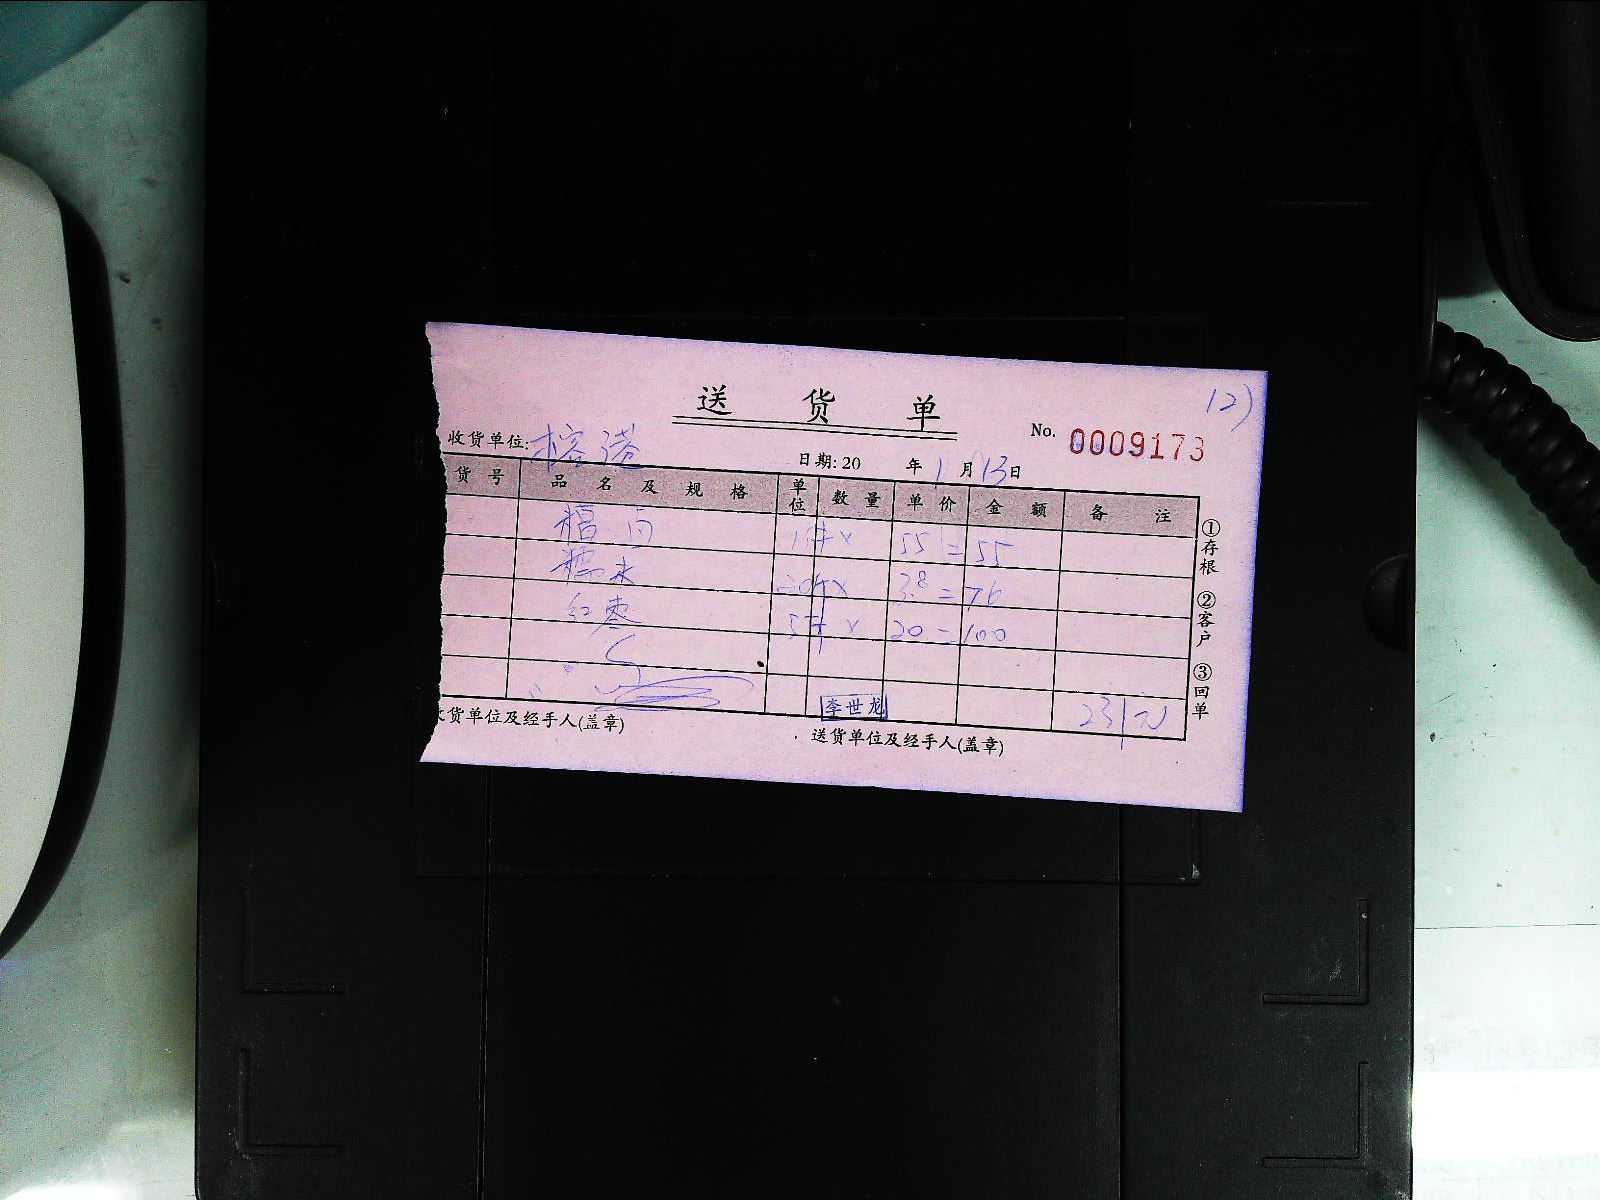 12)
送 货 单
No. 0009173
收货单位: 榕港
日期: 20 年 1 月 13 日
货号 品名及规格 单位 数量 单价 金额 备注
1斤 × 55 = 55
糯米 20斤 × 3.8 = 76
红枣 5斤 × 20 = 100
李世龙 231元
货单位及经手人(盖章)
送货单位及经手人(盖章)
①存根 ②客户 ③回单